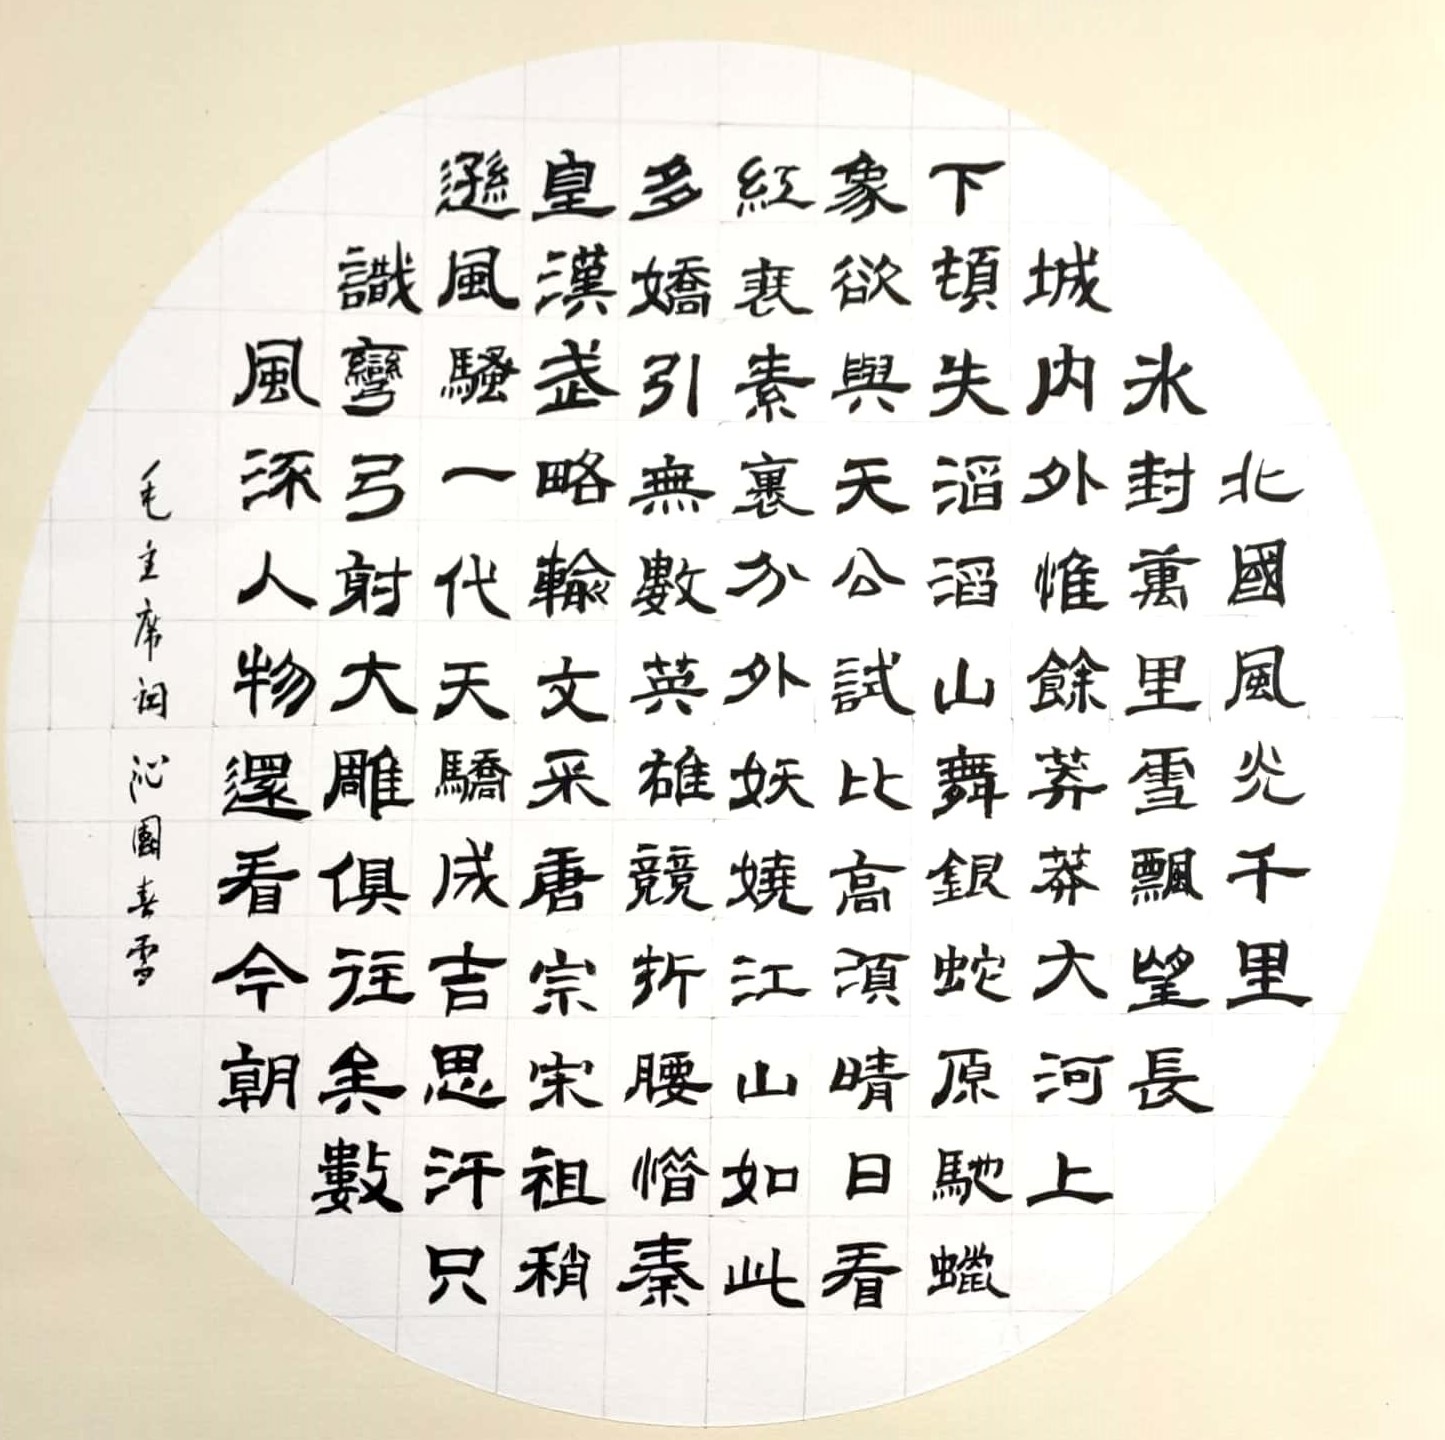 北國風光千里
氷封萬里雪飄望長
城内外惟餘莽莽大河上
下頓失滔滔山舞銀蛇原馳蠟
象欲與天公試比高湏晴日看
紅裝素裹分外妖嬈江山如此
多嬌引無數英雄競折腰惜秦
皇漢武略輸文采唐宗宋祖稍
遜風騷一代天驕成吉思汗只
識彎弓射大雕俱往矣數
風流人物還看今朝
毛主席詞沁園春雪